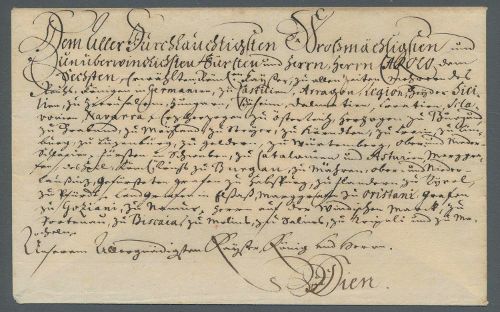 Dem Aller Durchläuchtigsten Großmächtigsten und
Unüberwindlichsten Fürsten und Herrn, Herrn CAROLO dem
Sechsten Erwehlten Röm: Kayser, zu allen Zeiten Mehrern des
Reichs, Königen in Germanien, zu Castilien, Arragon, Legion, beyder Sici-
lien, zu Hierusalem, Hungarn, Böheim, Dalmatien, Croatien, Scla-
vonien, Navarra, Erzherzogen zu Österreich, Herzogen zu Burgund
zu Braband, zu Mayland, zu Steyer, zu Kärndten, zu Crain, zu Lim-
burg, zu Luzenburg, zu Geldern, zu Würtemberg, Ober und Nieder
Schlesien, Fürsten zu Schwaben, zu Catalonien und Asturien, Marggra-
fen des Heil: Röm: Reichs zu Burgau, zu Mähren, Ober und Nieder
Laußnitz, Gefürsteten Grafen zu Habspurg, zu Flandern, zu Tyrol,
zu Landgrafen in Elsaß, Marggrafen zu Oristani, Grafen
zu Goziani, zu Namur, Herrn auf der Windischen Marck, zu
Portenau, zu Biscaia, zu Molins, zu Salins, zu Tripoli und zu Me-
cheln.
Unserem Allergnädigsten Kayser, König und Herrn.
Wien.